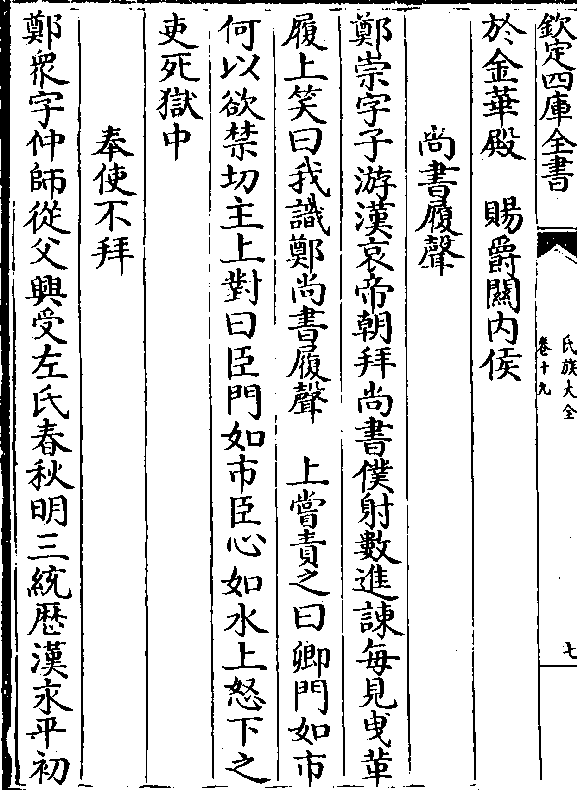 欽定四庫全書
氏族大全
卷十九
七
於金華殿　賜爵關内侯
尚書履聲
鄭崇字子游漢哀帝朝拜尚書僕射數進諫每見曵革
履上笑曰我識鄭尚書履聲　上嘗責之曰卿門如市
何以欲禁切主上對曰臣門如市臣心如水上怒下之
吏死獄中
奉使不拜
鄭眾字仲師從父興受左氏春秋明三統厯漢永平初